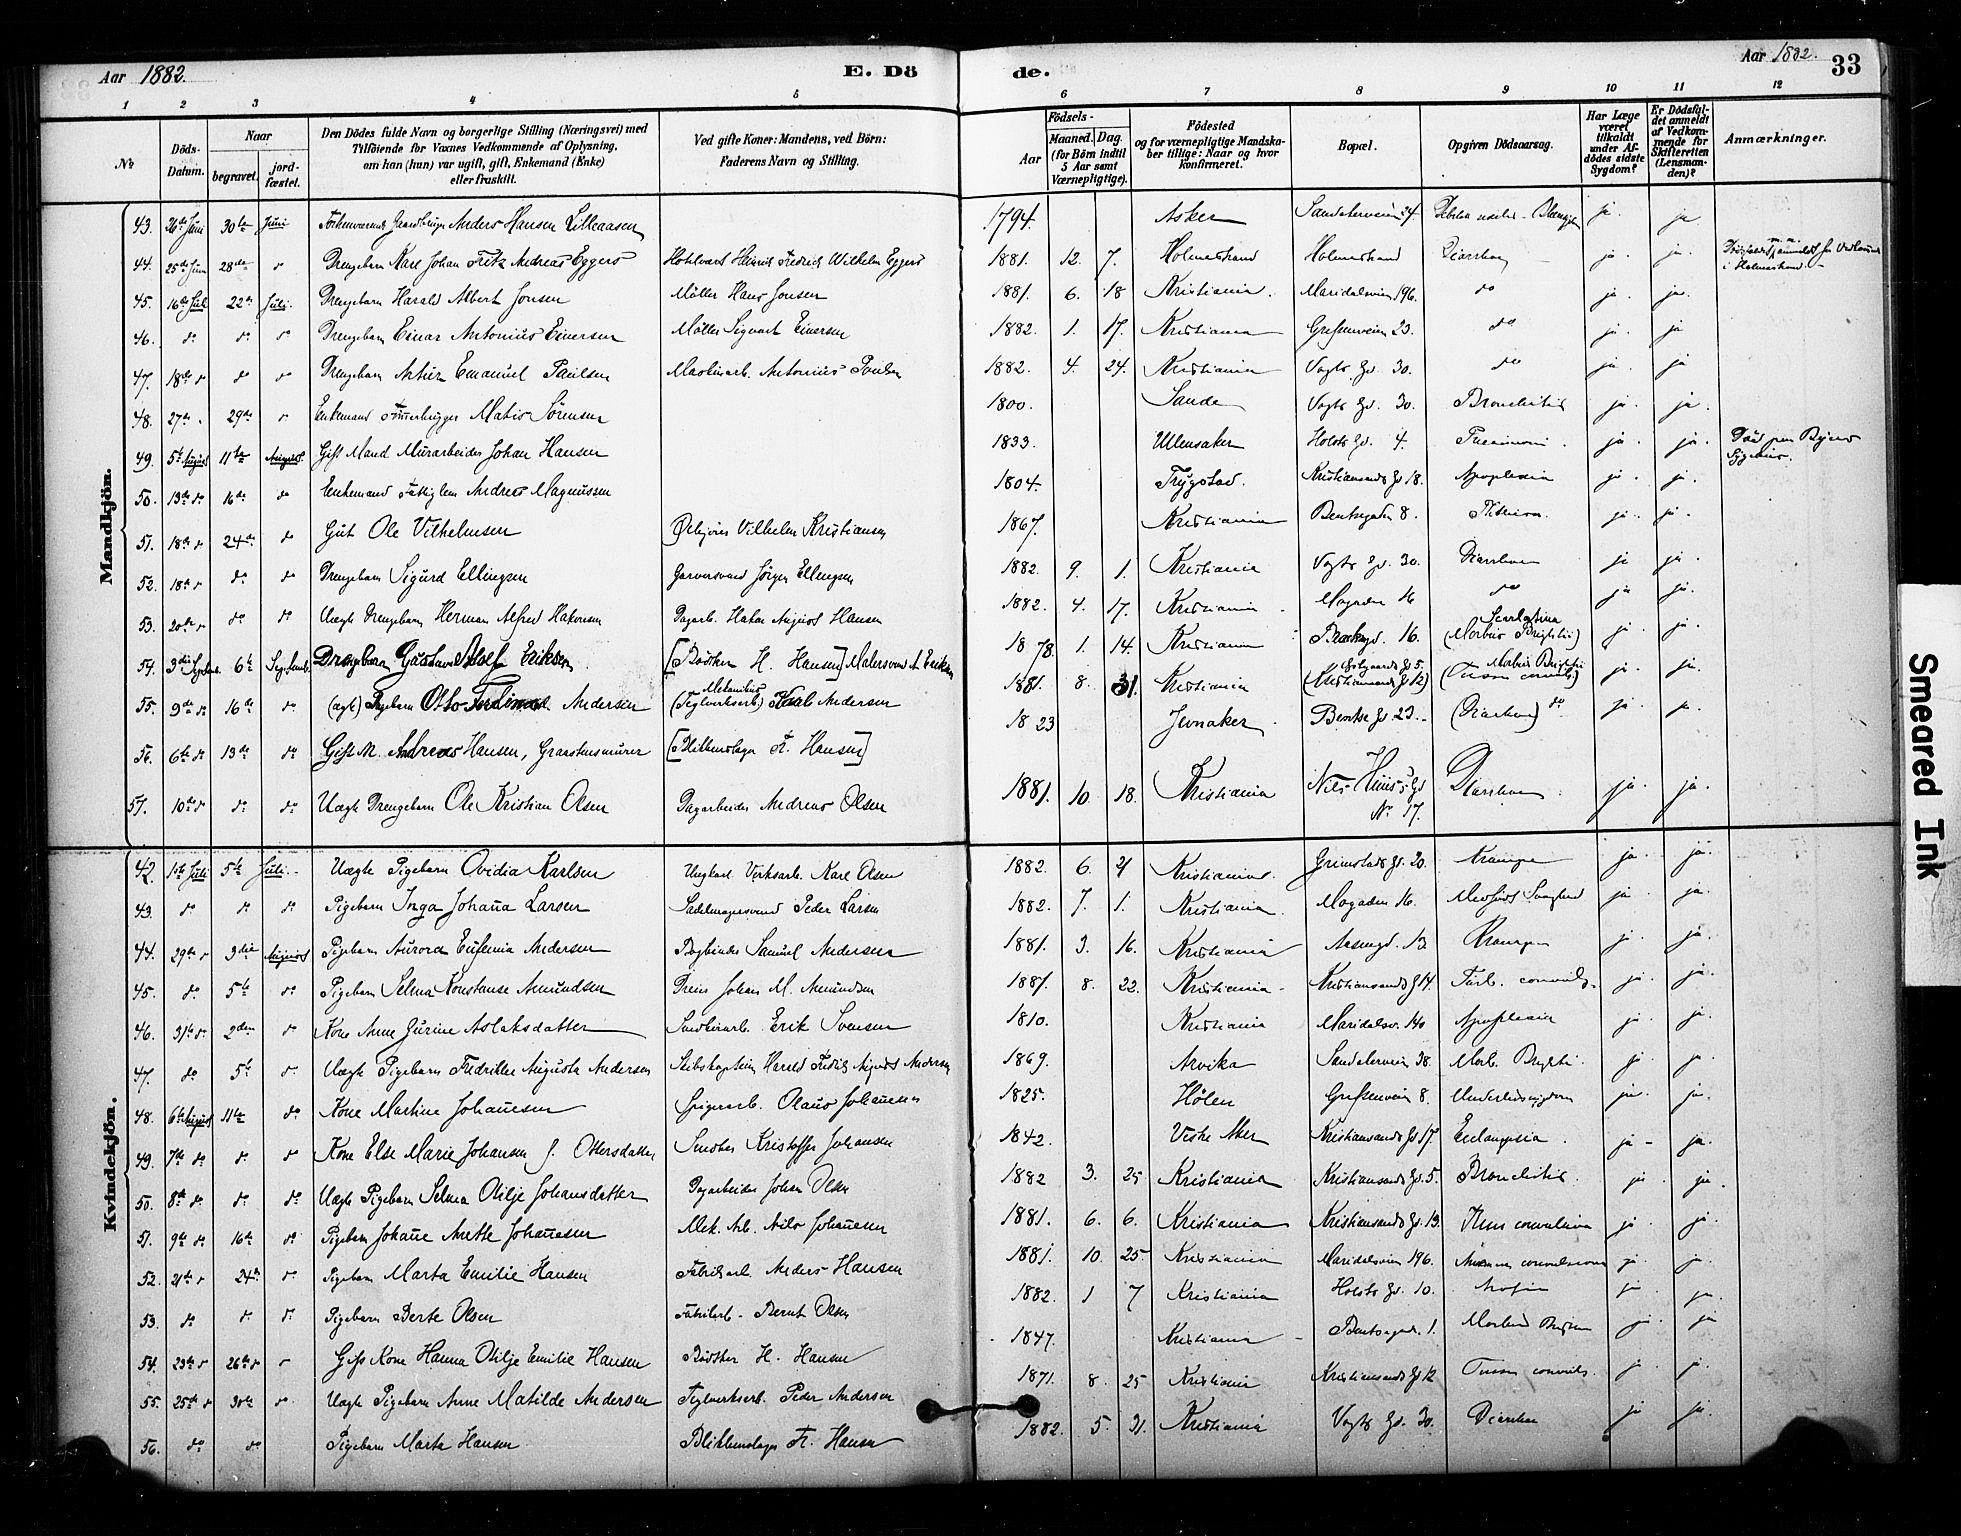 Aar 1882. E. Dö de. Aar 1882. 33
1 2 3 4 5 6 7 8 9 10 11 12
No
Döds-Datum.
Naar
begravet.
jord-fæstet.
Den Dödes fulde Navn og borgerlige Stilling (Næringsvei) med
Tilföiende for Voxnes Vedkommende af Oplysning,
om han (hun) var ugift, gift, Enkemand (Enke)
eller fraskilt.
Ved gifte Koner: Mandens, ved Börn:
Faderens Navn og Stilling.
Födsels-
Aar
Maaned. Dag.
(for Börn indtil
5 Aar samt
Værnepligtige).
Födested
og for værnepligtige Mandska-
ber tillige: Naar og hvor
konfirmeret.
Bopæl.
Opgiven Dödsaarsag.
Har Læge
været
tilkaldt
under Af-
dödes sidste
Sygdom?
Er Dödsfal-
det anmeldt
af Vedkom-
mende for
Skifteretten
(Lensman-
den)?
Anmærkninger.
Mandkjön.
43. 26de Juni 30te Juni Anders Hansen Lilleaasen 1794. Asker Sandakerveien 24 ja. ja
44. 25de Juni 28de do Drengebarn Karl Johan Fritz Andreas Eggers Heinrich Fredrich Wilhelm Eggers 1881. 12. 7. Holmestrand Holmestrand Diarrhoe ja. ja. i Holmestrand.
45. 16de Juli 22de Juli. Drengebarn Harald Albert Jonsen Möller Hans Jonsen 1881. 6. 18 Kristiania. Maridalsveien 196. do ja. ja.
46. do do do Drengebarn Einar Antonius Einersen Möller Sigvart Einersen 1882. 1. 17. Kristiania Grefsenveien 23. do ja. ja
47. 18de do do do Drengebarn Emanuel Paulsen Antonius Paulsen 1882. 4. 24. Kristiania Vogts Gd. 30. do ja. ja
48. 27de 29de Enkemand Matis Sörensen 1800. Sande Vogts Gd. 30. Bronchitis ja. ja.
49. 5te August 11te August Gift Mand Murarbeider Johan Hansen 1833. Ullensaker Holsts Gd. 4. ja. ja. Död paa Byens Sygehus.
50. 13de do 16de do Enkemand Fattiglem Andreas Magnussen 1804. Trygstad. Kristiansands Gd 18. Apoplexia ja. ja.
51. 18de do 24de do Gut Ole Vilhelmsen Vilhelm Kristiansen 1867. Kristiania Bentsegaden 8. ja. ja.
52. 18de do do do Drengebarn Sigurd Ellingsen Garversvend Jörgen Ellingsen 1882. 9. 1. Kristiania Vogts Gd. 30. Diarrhoe ja ja.
53. 20de do do do Uægte Drengebarn Herman Alfred Hakonsen Dagarb. Hakon August Hansen 1882. 4. 17. Kristiania Mogaden 16 do ja ja.
54. 3die Septemb. 6te Septemb. Drengebarn Gustav Adolf Eriksen [Bödtker H. Hansen] Malersvend A. Eriksen 1878. 1. 14. Kristiania 16. Scarlatina (Morbus Brightii) ja. ja.
55. 9de do 16de do (ægte) Drgebarn Otto Ferdinand Andersen Mekanikus (Teglverksarb.) Karl Andersen 1881. 8. 31. Kristiania 5. (Kristiansands Gd 12) Morbus Brightii (Tussis convuls.) ja. ja.
56. 6te do 13de do Gift M. Andreas Hansen, Graastensmurer [Blikkenslager Fr. Hansen] 1823 Jevnaker Bentse Gd. 23. (Diarrhoe) do ja. ja.
57. 10de do do do Uægte Drengebarn Ole Kristian Olsen Dagarbeider Andreas Olsen 1881. 10. 18. Kristiania Nils Huus's Gd No 17. Diarrhoe ja. ja.
Kvindekjön.
42. 1ste Juli 5te Juli. Uægte Pigebarn Ovidia Karlsen Ungkarl Verksarb. Karl Olsen 1882. 6. 21 Kristiania. Grimstads Gd. 20. Krampe ja. ja.
43. do do do Pigebarn Inga Johanna Larsen Sadelmagersvend Peder Larsen 1882. 7. 1. Kristiania. Mogaden 16. Medfödt Svaghed ja. ja.
44. 29de do 3die August Pigebarn Aurora Eufemia Andersen Bogbinder Samuel Andersen 1881. 3. 16. Kristiania 13 Krampe ja. ja.
45. do 5te do Pigebarn Selma Konstanse Amundsen Dreier Johan M. Amundsen 1881. 8. 22. Kristiania Kristiansands Gd 14. convuls. ja. ja.
46. 31te do 2den do Kone Anne Gurine Aslaksdatter Erik Svensen 1810. Kristiania Maridalsv. 140 Apoplexia ja. ja.
47. do 5te do Uægte Pigebarn Fredrikke Augusta Andersen Skibskaptein Harald Fredrik August Andersen 1869. Arvika Sandakerveien 38. Morb. Brightii ja. ja
48. 6te August 11te do Kone Martine Johannesen Spigerarb. Olaus Johannesen 1825. Hölen Grefsenveien 8. Underlivssygdom ja. ja.
49. 7de do do do Kone Else Marie Johansen f. Ottersdatter Smeden Kristoffer Johansen 1842. Vestre Aker Kristiansands Gd 17. Eclampsia. ja. ja.
50. 8de do do do Uægte Pigebarn Selma Otilje Johansdatter Dagarbeider Johan Olsen 1882 3. 25 Kristiania Kristiansands Gd. 5. Bronchitis. ja. ja.
51. 9de do 16de do Pigebarn Johanne Anette Johannesen Mek. Arb. Nils Johannesen 1881. 6. 6. Kristiania Kristiansands Gd. 13. ja. ja.
52. 21de do 24de do Pigebarn Marta Emilie Hansen Fabrikarb. Anders Hansen 1881. 10. 25 Kristiania Maridalsveien 196. ja. ja.
53. do do do Pigebarn Berte Olsen Fabrikarb. Bernt Olsen 1882. 1 7 Kristiania Holsts Gd. 10. ja. ja.
54. 23de do 26de do Gift Kone Hanna Otilje Emilie Hansen Bödtker H. Hansen 1847. Kristiania Bentsegad. 1. ja. ja
55. 25de do 30te do Uægte Pigebarn Anne Matilde Andersen Teglverksarb. Peder Andersen 1871. 8. 25 Kristiania Kristiansands Gd 12 Tussis convuls. ja. ja.
56. do do Pigebarn Marta Hansen Blikkenslager Fr. Hansen 1882. 5. 21. Kristiania Vogts Gd. 30. Diarrhoe ja ja.
Smeared Ink